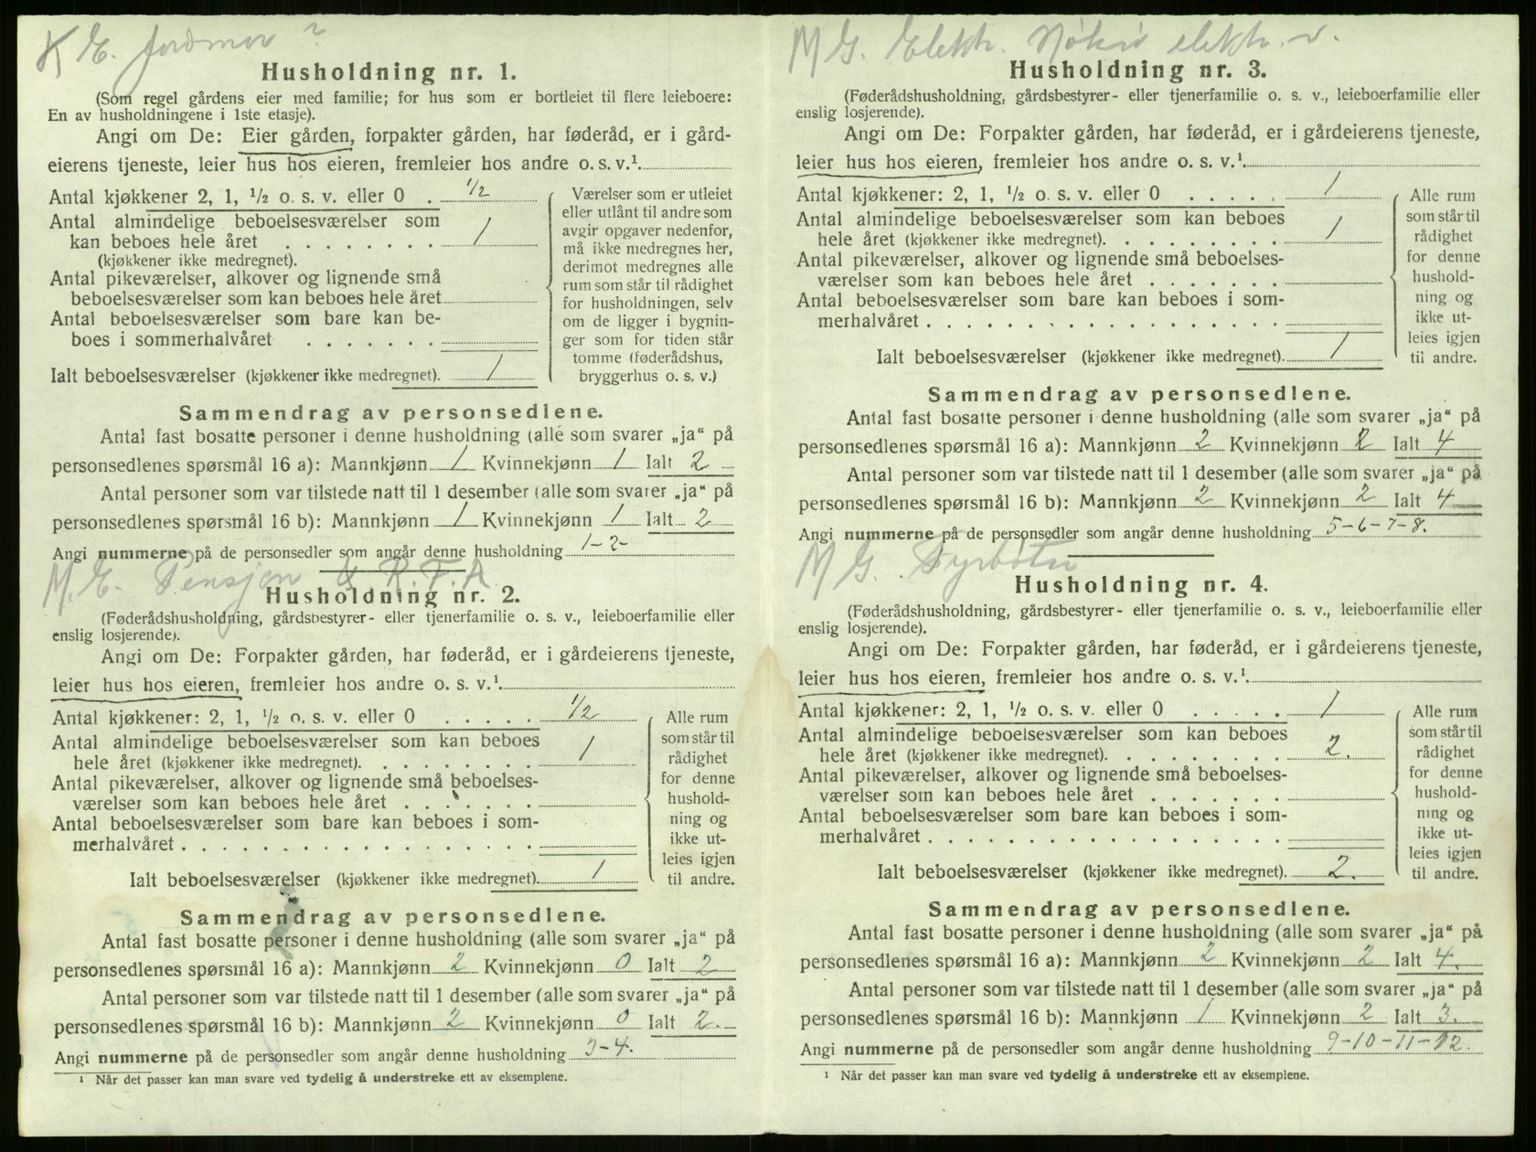 K E. Jordmor ?
Husholdning nr. 1.
(Som regel gårdens eier med familie; for hus som er bortleiet til flere leieboere:
En av husholdningene i 1ste etasje).
Angi om De: Eier gården, forpakter gården, har føderåd, er i gård-
eierens tjeneste, leier hus hos eieren, fremleier hos andre o. s. v.¹
Antal kjøkkener 2, 1, ½ o. s. v. eller 0 . ½
Antal almindelige beboelsesværelser som
kan beboes hele året . . . . . . . . 1
(kjøkkener ikke medregnet).
Antal pikeværelser, alkover og lignende små
beboelsesværelser som kan beboes hele året
Antal beboelsesværelser som bare kan be-
boes i sommerhalvåret . . . . . . .
Ialt beboelsesværelser (kjøkkener ikke medregnet). 1
Værelser som er utleiet
eller utlånt til andre som
avgir opgaver nedenfor,
må ikke medregnes her,
derimot medregnes alle
rum som står til rådighet
for husholdningen, selv
om de ligger i bygnin-
ger som for tiden står
tomme (føderådshus,
bryggerhus o. s. v.)
Sammendrag av personsedlene.
Antal fast bosatte personer i denne husholdning (alle som svarer „ja“ på
personsedlenes spørsmål 16 a): Mannkjønn 1 Kvinnekjønn 1 Ialt 2
Antal personer som var tilstede natt til 1 desember (alle som svarer „ja“ på
personsedlenes spørsmål 16 b): Mannkjønn 1 Kvinnekjønn 1 Ialt 2
Angi nummerne på de personsedler som angår denne husholdning 1-2-
M. E. Pensjon & R. F. A.
Husholdning nr. 2.
(Føderådshusholdning, gårdsbestyrer- eller tjenerfamilie o. s. v., leieboerfamilie eller
enslig losjerende).
Angi om De: Forpakter gården, har føderåd, er i gårdeierens tjeneste,
leier hus hos eieren, fremleier hos andre o. s. v.¹
Antal kjøkkener: 2, 1, ½ o. s. v. eller 0 . . . . . ½
Antal almindelige beboelsesværelser som kan beboes
hele året (kjøkkener ikke medregnet). . . . . . . . 1
Antal pikeværelser, alkover og lignende små beboelses-
værelser som kan beboes hele året . . . . . . .
Antal beboelsesværelser som bare kan beboes i som-
merhalvåret . . . . . . . . . . . . . . . . . .
Ialt beboelsesværelser (kjøkkener ikke medregnet). 1
Alle rum
som står til
rådighet
for denne
hushold-
ning og
ikke ut-
leies igjen
til andre.
Sammendrag av personsedlene.
Antal fast bosatte personer i denne husholdning (alle som svarer „ja“ på
personsedlenes spørsmål 16 a): Mannkjønn 2 Kvinnekjønn 0 Ialt 2
Antal personer som var tilstede natt til 1 desember (alle som svarer „ja“ på
personsedlenes spørsmål 16 b): Mannkjønn 2 Kvinnekjønn 0 Ialt 2.
Angi nummerne på de personsedler som angår denne husholdning 3-4.
¹ Når det passer kan man svare ved tydelig å understreke ett av eksemplene.
M G. Elektr. elektr. v.
Husholdning nr. 3.
(Føderådshusholdning, gårdsbestyrer- eller tjenerfamilie o. s. v., leieboerfamilie eller
enslig losjerende).
Angi om De: Forpakter gården, har føderåd, er i gårdeierens tjeneste,
leier hus hos eieren, fremleier hos andre o. s. v.¹
Antal kjøkkener: 2, 1, ½ o. s. v. eller 0 . . . . . 1
Antal almindelige beboelsesværelser som kan beboes
hele året (kjøkkener ikke medregnet). . . . . . . . 1
Antal pikeværelser, alkover og lignende små beboelses-
værelser som kan beboes hele året . . . . . . .
Antal beboelsesværelser som bare kan beboes i som-
merhalvåret . . . . . . . . . . . . . . . . . .
Ialt beboelsesværelser (kjøkkener ikke medregnet). 1
Alle rum
som står til
rådighet
for denne
hushold-
ning og
ikke ut-
leies igjen
til andre.
Sammendrag av personsedlene.
Antal fast bosatte personer i denne husholdning (alle som svarer „ja“ på
personsedlenes spørsmål 16 a): Mannkjønn 2 Kvinnekjønn 2 Ialt 4
Antal personer som var tilstede natt til 1 desember (alle som svarer „ja“ på
personsedlenes spørsmål 16 b): Mannkjønn 2 Kvinnekjønn 2 Ialt 4
Angi nummerne på de personsedler som angår denne husholdning 5-6-7-8.
M G. Fyrbøter
Husholdning nr. 4.
(Føderådshusholdning, gårdsbestyrer- eller tjenerfamilie o. s. v., leieboerfamilie eller
enslig losjerende).
Angi om De: Forpakter gården, har føderåd, er i gårdeierens tjeneste,
leier hus hos eieren, fremleier hos andre o. s. v.¹
Antal kjøkkener: 2, 1, ½ o. s. v. eller 0 . . . . . 1
Antal almindelige beboelsesværelser som kan beboes
hele året (kjøkkener ikke medregnet). . . . . . . . 2.
Antal pikeværelser, alkover og lignende små beboelses-
værelser som kan beboes hele året . . . . . . .
Antal beboelsesværelser som bare kan beboes i som-
merhalvåret . . . . . . . . . . . . . . . . . .
Ialt beboelsesværelser (kjøkkener ikke medregnet). 2.
Alle rum
som står til
rådighet
for denne
hushold-
ning og
ikke ut-
leies igjen
til andre.
Sammendrag av personsedlene.
Antal fast bosatte personer i denne husholdning (alle som svarer „ja“ på
personsedlenes spørsmål 16 a): Mannkjønn 2 Kvinnekjønn 2 Ialt 4.
Antal personer som var tilstede natt til 1 desember (alle som svarer „ja“ på
personsedlenes spørsmål 16 b): Mannkjønn 1 Kvinnekjønn 2 Ialt 3.
Angi nummerne på de personsedler som angår denne husholdning 9-10-11-12.
¹ Når det passer kan man svare ved tydelig å understreke ett av eksemplene.